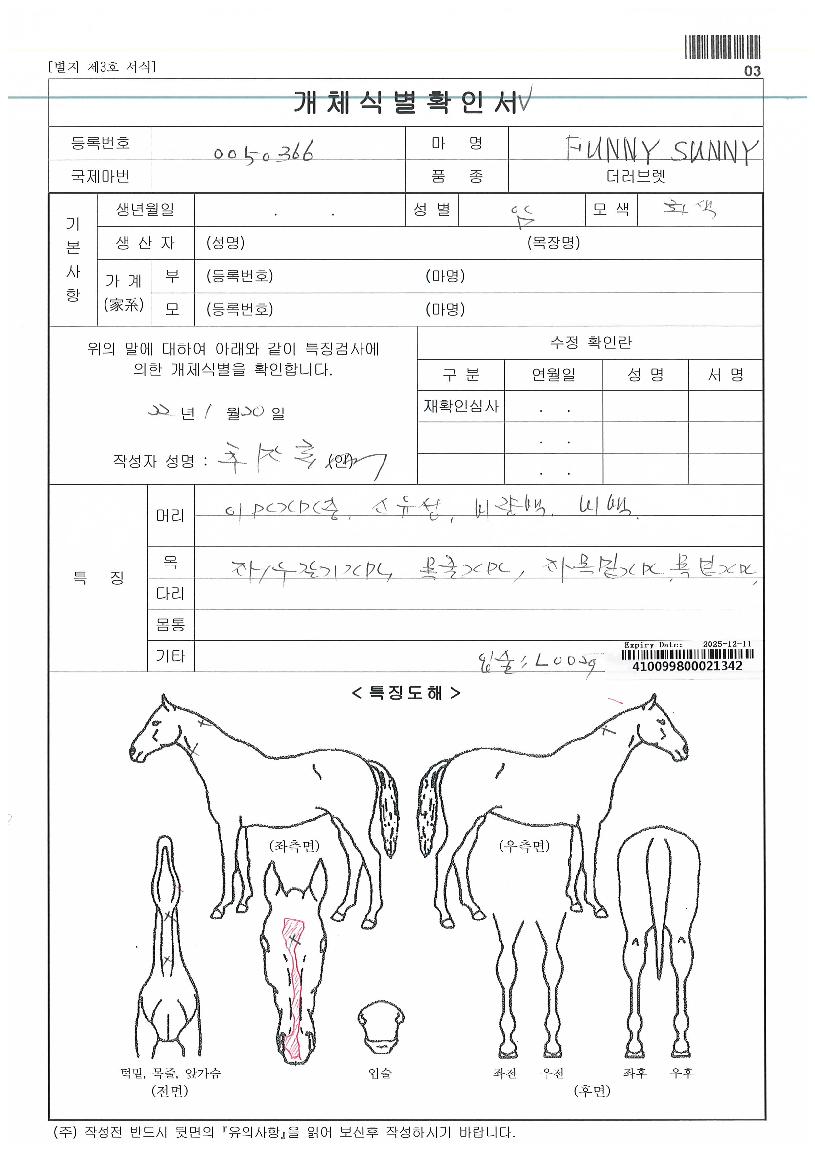 [별지 제3호 서식]
03
개체식별확인서
등록번호 0050366 마 명 FUNNY SUNNY
국제마번 품 종 더러브렛
기본사항
생년월일 . . 성별 모색
생산자 (성명) (목장명)
가계 (家系) 부 (등록번호) (마명)
모 (등록번호) (마명)
위의 말에 대하여 아래와 같이 특징검사에
의한 개체식별을 확인합니다.
22 년 1 월 20 일
작성자 성명 : (인)
수정 확인란
구 분 연월일 성 명 서 명
재확인심사 . .
. .
. .
특 징
머리
목
다리
몸통
기타
Expiry Date: 2025-12-11
410099800021342
< 특징도해 >
(좌측면) (우측면)
턱밑, 목줄, 앞가슴 입술 좌전 우전 좌후 우후
(전면) (후면)
(주) 작성전 반드시 뒷면의 『유의사항』을 읽어 보신후 작성하시기 바랍니다.